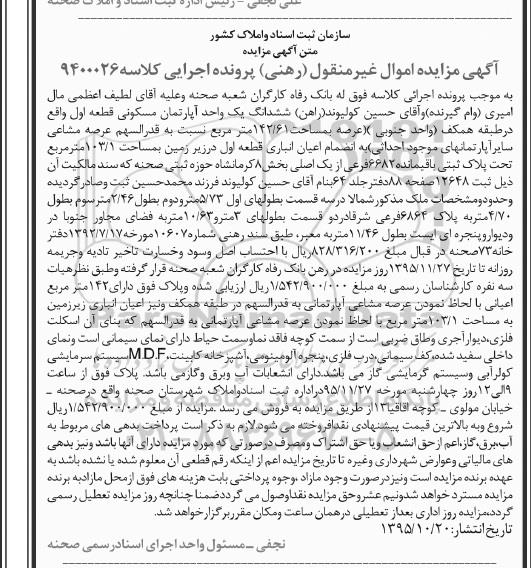 علی نجفی - رئیس اداره ثبت اسناد و املاک صحنه
سازمان ثبت اسناد واملاک کشور
متن آگهی مزایده
آگهی مزایده اموال غیرمنقول (رهنی) پرونده اجرایی کلاسه۹۴۰۰۰۲۶
به موجب پرونده اجرائی کلاسه فوق له بانک رفاه کارگران شعبه صحنه وعلیه آقای لطیف اعظمی مال
امیری (وام گیرنده)وآقای حسین کولیوند(راهن) ششدانگ یک واحد آپارتمان مسکونی قطعه اول واقع
درطبقه همکف (واحد جنوبی )(عرصه بمساحت۱۴۲/۶۱متر مربع نسبت به قدرالسهم عرصه مشاعی
سایرآپارتمانهای موجود احداثی)به انضمام اعیان انباری قطعه اول درزیر زمین بمساحت ۱۰۳/۱مترمربع
تحت پلاک ثبتی باقیمانده۶۶۸۲فرعی از یک اصلی بخش۸کرمانشاه حوزه ثبتی صحنه که سند مالکیت آن
ذیل ثبت ۱۲۶۴۸صفحه ۸۸دفترجلد ۶۴بنام آقای حسین کولیوند فرزند محمدحسین ثبت وصادرگردیده
وحدودومشخصات ملک مذکورشمالا درسه قسمت بطولهای اول ۵/۷۳مترودوم بطول۲/۴۶مترسوم بطول
۴/۷۰متربه پلاک ۶۸۶۴فرعی شرقادردو قسمت بطولهای ۳مترو۱۰/۶۳متربه فضای مجاور جنوبا در
ودیواروپنجره ای ایست بطول ۱۱/۴۶متربه معبر، طبق سند رهنی شماره۱۰۶۰۷مورخه۱۳۹۲/۷/۱۷دفتر
خانه۷۳صحنه در قبال مبلغ ۸۲۸/۳۱۶/۲۰۰ریال با احتساب اصل وسود وخسارت تاخیر تادیه وجریمه
روزانه تا تاریخ ۱۳۹۵/۱۱/۲۷روز مزایده در رهن بانک رفاه کارگران شعبه صحنه قرار گرفته وطبق نظرهیات
سه نفره کارشناسان رسمی به مبلغ ۱/۵۴۲/۹۰۰/۰۰۰ریال ارزیابی شده وپلاک فوق دارای۱۴۲متر مربع
اعیانی با لحاظ نمودن عرصه مشاعی آپارتمانی به قدرالسهم در طبقه همکف ونیز اعیان انباری زیرزمین
به مساحت ۱۰۳/۱متر مربع با لحاظ نمودن عرصه مشاعی آپارتمانی به قدرالسهم که بنای آن اسکلت
فلزی،دیوارآجری وطاق ضربی است از سمت کوچه فاقد نماوسمت حیاط دارای نمای سیمانی است ونمای
داخلی سفید شده،کف سیمانی،درب فلزی،پنجره آلومینومی،آشپزخانه کابینت،M.D.F،سیستم سرمایشی
کولرآبی وسیستم گرمایشی گاز می باشد.دارای انشعابات آب وبرق وگازمی باشد. پلاک فوق از ساعت
۹الی۱۲روز چهارشنبه مورخه ۹۵/۱۱/۲۷دراداره ثبت اسنادواملاک شهرستان صحنه واقع درصحنه ـ
خیابان مولوی ـ کوچه اقاقیا۱۳از طریق مزایده به فروش می رسد .مزایده از مبلغ ۱/۵۴۲/۹۰۰/۰۰۰ریال
شروع وبه بالاترین قیمت پیشنهادی نقدافروخته می شود.لازم به ذکر است پرداخت بدهی های مربوط به
آب،برق،گاز،اعم از حق انشعاب ویا حق اشتراک ومصرف درصورتی که مورد مزایده دارای آنها باشد ونیز بدهی
های مالیاتی وعوارض شهرداری وغیره تا تاریخ مزایده اعم از اینکه رقم قطعی آن معلوم شده یا نشده باشد به
عهده برنده مزایده است ونیزدرصورت وجود مازاد ،وجوه پرداختی بابت هزینه های فوق ازمحل مازادبه برنده
مزایده مسترد خواهد شدونیم عشروحق مزایده نقداوصول می گرددضمنا چنانچه روز مزایده تعطیل رسمی
گردد،مزایده روز اداری بعداز تعطیلی درهمان ساعت ومکان مقرربرگزارخواهد شد.
تاریخ انتشار:۱۳۹۵/۱۰/۲۰
نجفی ــ مسئول واحد اجرای اسنادرسمی صحنه